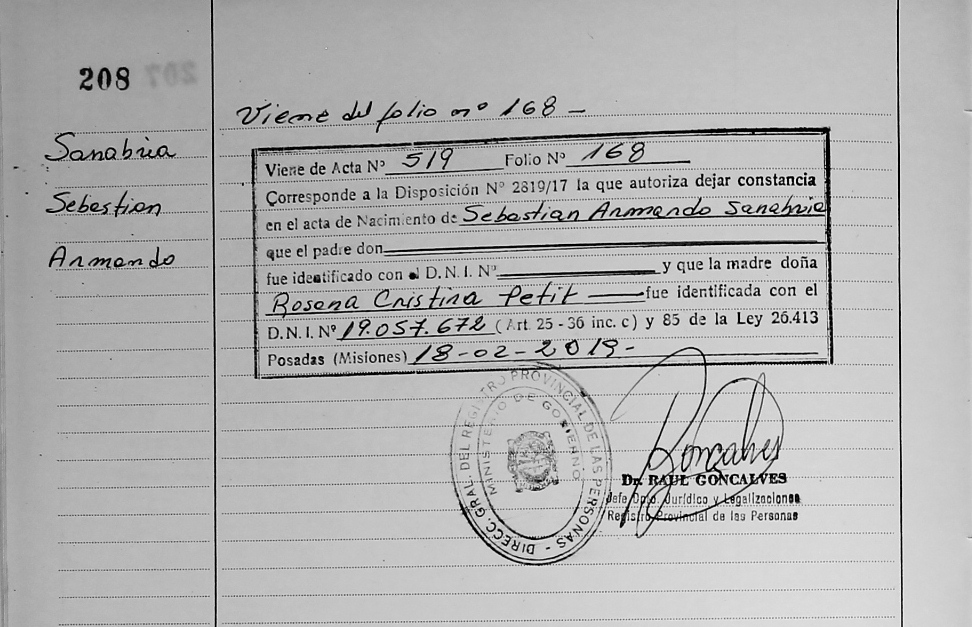 208
Sanabria
Sebastian
Armando
Viene del folio nº 168 -
Viene de Acta Nº 519 Folio Nº 168
Corresponde a la Disposición Nº 2819/17 la que autoriza dejar constancia
en el acta de Nacimiento de Sebastian Armando Sanabria
que el padre don
fue identificado con el D.N.I. Nº y que la madre doña
Rosana Cristina Petit fue identificada con el
D.N.I. Nº 19.057.672 (Art. 25 - 36 inc. c) y 85 de la Ley 26.413
Posadas (Misiones) 18-02-2019-
DIRECC. GRAL. DEL REGISTRO PROVINCIAL DE LAS PERSONAS -
MINISTERIO DE GOBIERNO
Goncalves
Dr. RAUL GONCALVES
Jefe Dpto. Jurídico y Legalizaciones
Registro Provincial de las Personas